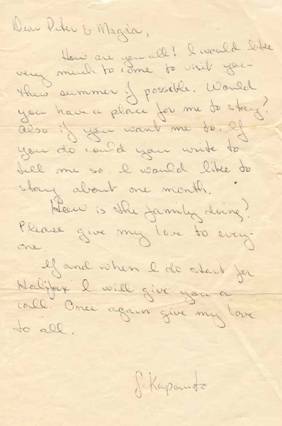 Dear Peter & Magda,
How are you all? I would like
very much to come to visit you
this summer if possible. Would
you have a place for me to stay?
Also if you want me to. If
you do could you write to
tell me so. I would like to
stay about one month.
How is the family doing?
Please give my love to every-
one.
If and when I do start for
Halifax I will give you a
call. Once again give my love
to all.